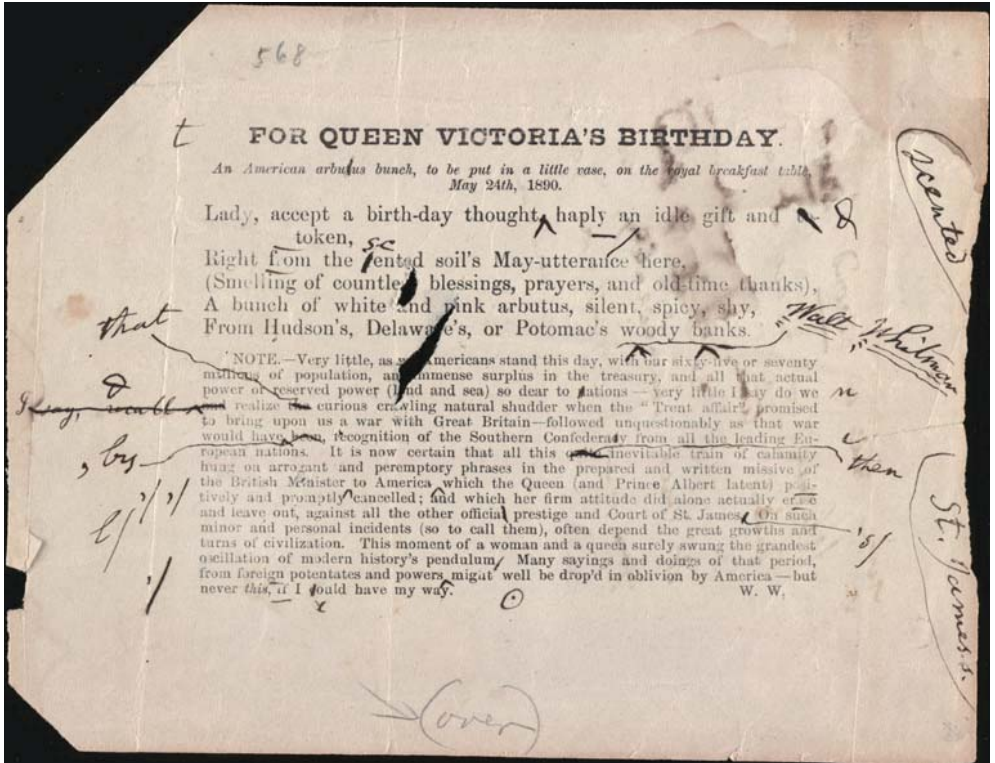 568
t
FOR QUEEN VICTORIA'S BIRTHDAY.
An American arbutus bunch, to be put in a little vase, on the royal breakfast table,
May 24th, 1890.
scented
Lady, accept a birth-day thought, haply an idle gift and &
token,
sc
Right from the ented soil's May-utterance here,
(Smelling of countle blessings, prayers, and old-time thanks),
A bunch of white and pink arbutus, silent, spicy, shy,
From Hudson's, Delaware's, or Potomac's woody banks.
Walt Whitman
that
NOTE.—Very little, as Americans stand this day, with our sixty-five or seventy
millions of population, an immense surplus in the treasury, and all that actual
power or reserved power (land and sea) so dear to nations—very little I may do we
n
&
I say, recall and realize the curious crawling natural shudder when the "Trent affair" promised
to bring upon us a war with Great Britain—followed unquestionably as that war
would have been, recognition of the Southern Confederacy from all the leading Eu-
, by
then
ropean nations. It is now certain that all this inevitable train of calamity
hung on arrogant and peremptory phrases in the prepared and written missive of
the British Minister to America which the Queen (and Prince Albert latent) posi-
tively and promptly cancelled; and which her firm attitude did alone actually erase
and leave out, against all the other official prestige and Court of St. James. On such
St. James's.
minor and personal incidents (so to call them), often depend the great growths and
's/
turns of civilization. This moment of a woman and a queen surely swung the grandest
oscillation of modern history's pendulum. Many sayings and doings of that period,
from foreign potentates and powers might well be drop'd in oblivion by America—but
never this, if I could have my way.
W. W.
(over)